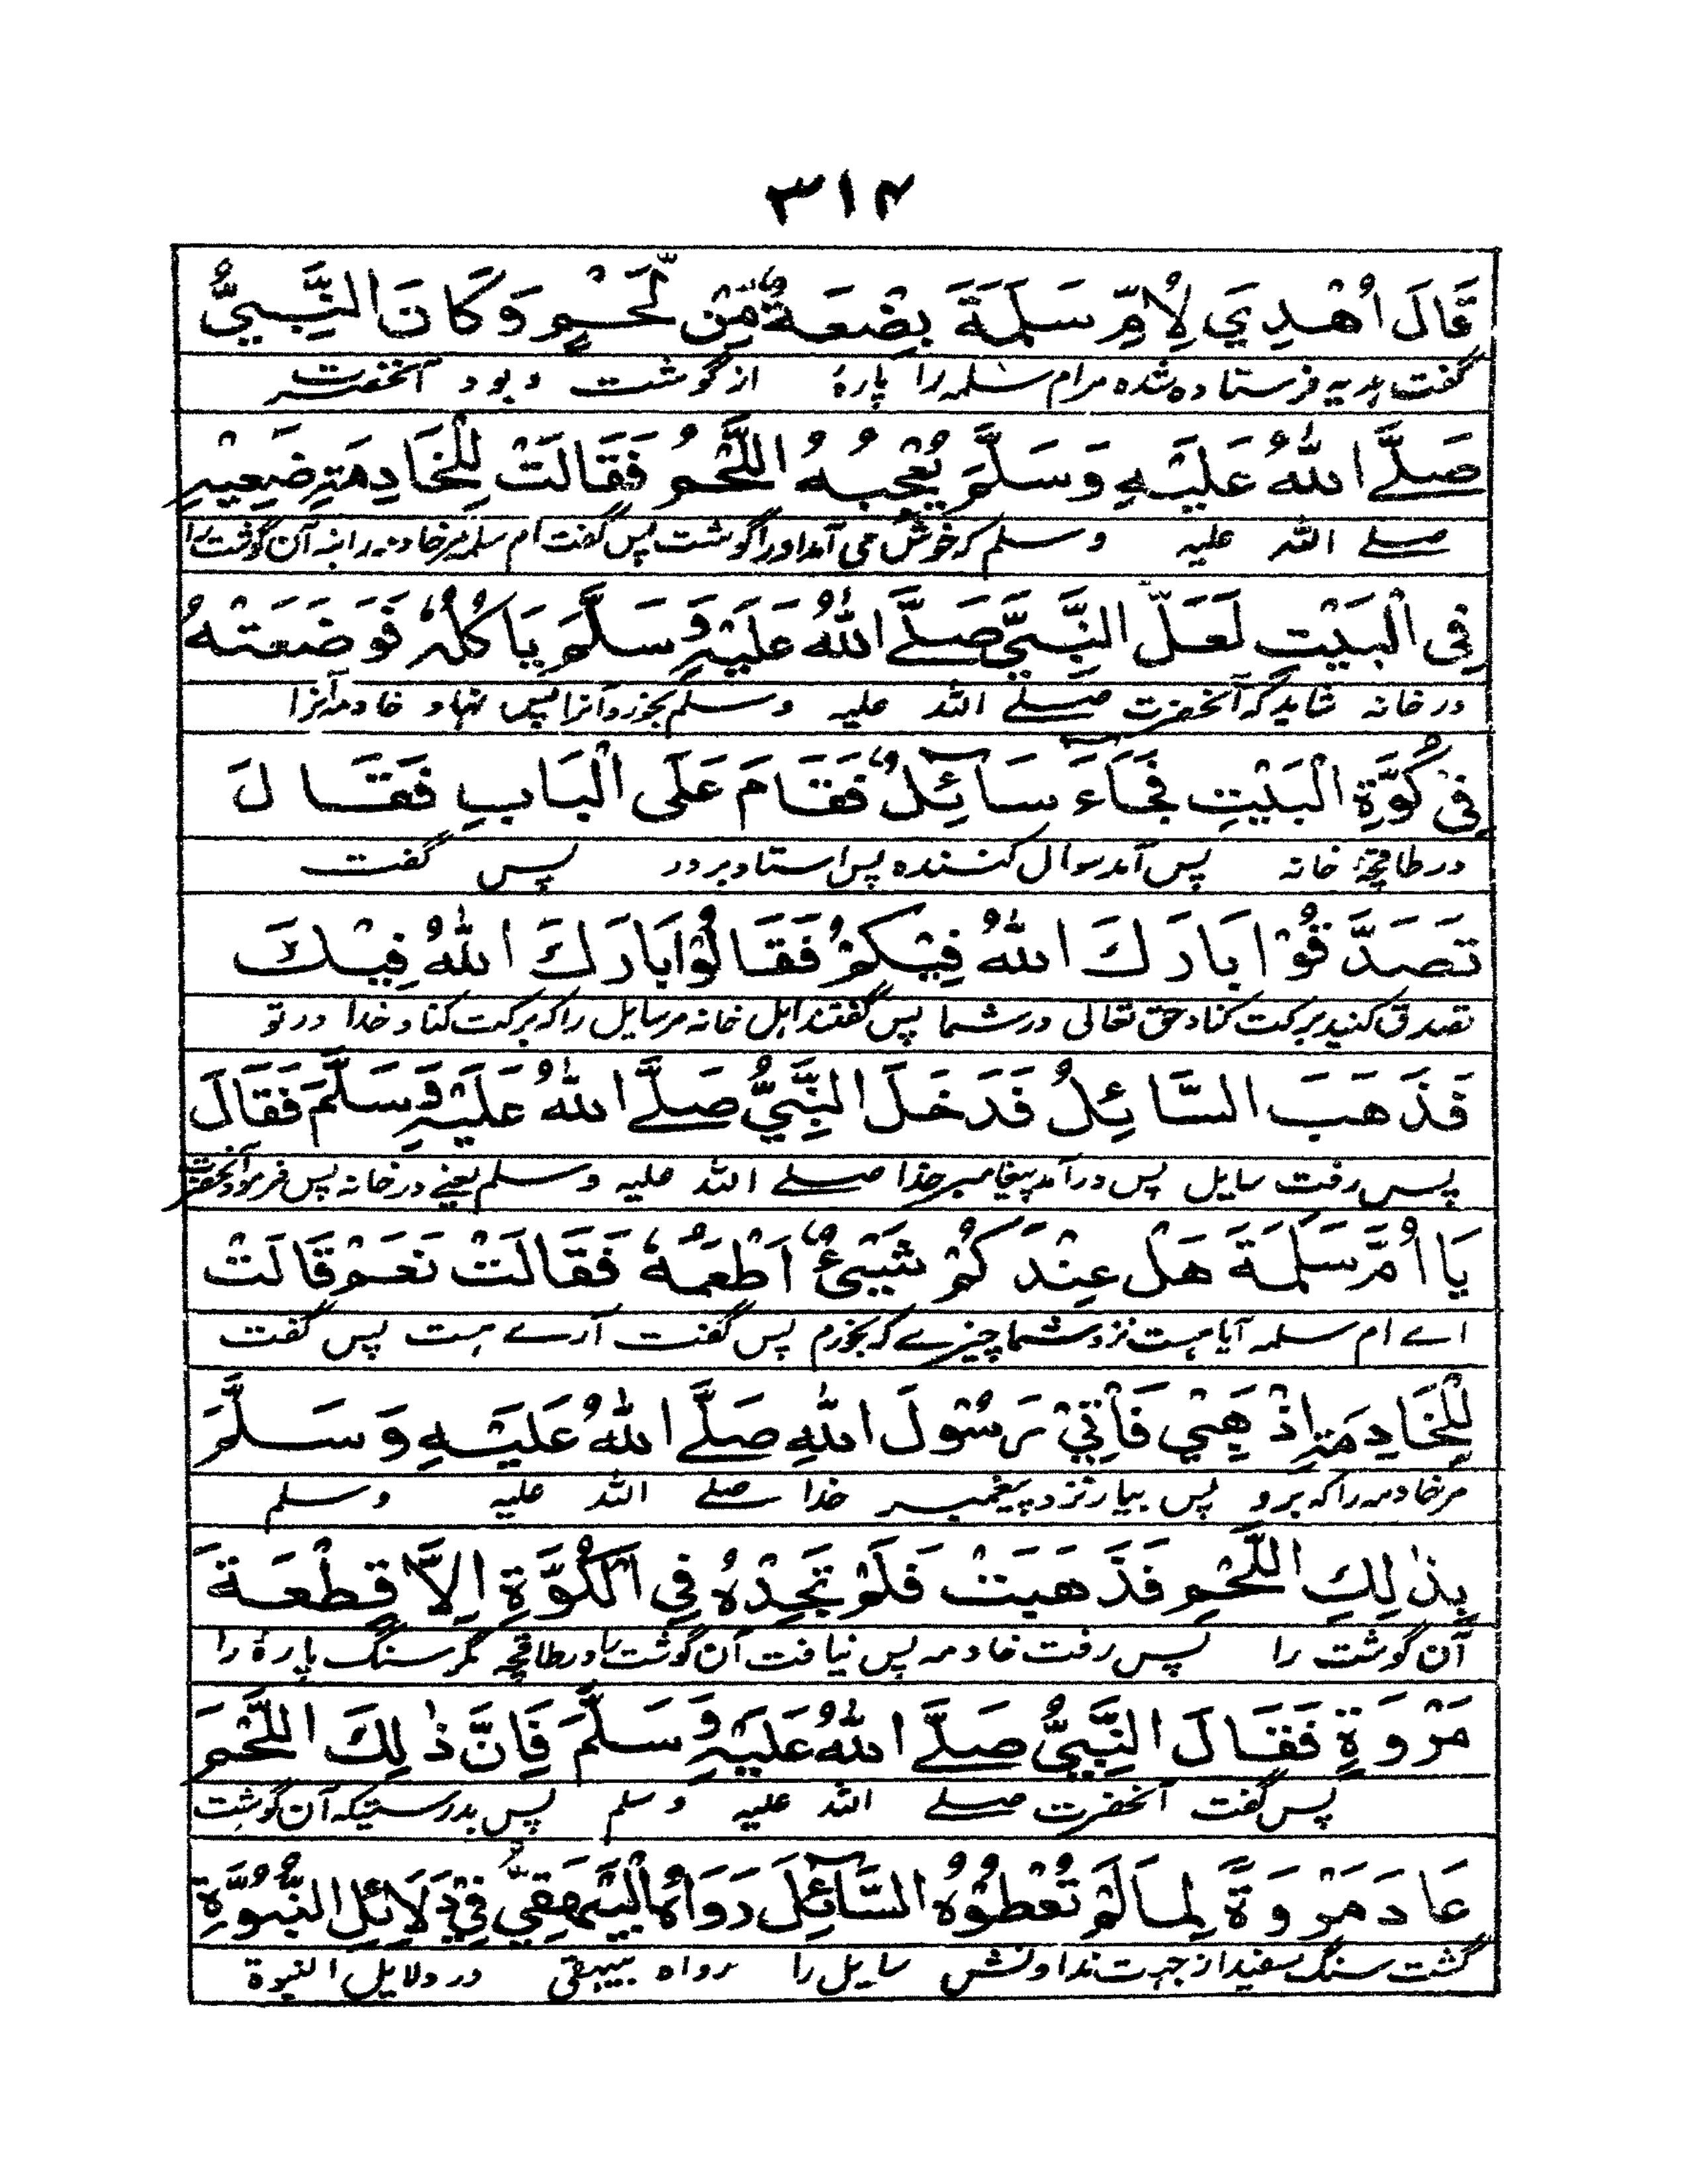 ۳۱۴
قَالَ اُهْدِيَ لِاُمِّ سَلَمَةَ بِضْعَةٌ مِّنْ لَّحْمٍ وَكَانَ النَّبِيُّ
گفت ہدیہ فرستادہ شدہ مرام سلمہ را پارۂ از گوشت و بود آنحضرت
صَلَّے اللّٰهُ عَلَيْهِ وَسَلَّمَ يُعْجِبُهُ اللَّحْمُ فَقَالَتْ لِلْخَادِمَةِ ضَعِيْهِ
صلے اللہ علیہ وسلم کہ خوش می آمد اورا گوشت پس گفت ام سلمہ مر خادمہ را بنہ آن گوشت را
فِي الْبَيْتِ لَعَلَّ النَّبِيَّ صَلَّے اللّٰهُ عَلَيْهِ وَسَلَّمَ يَاكُلُهٗ فَوَضَعَتْهُ
در خانہ شاید کہ آنحضرت صلے اللہ علیہ وسلم بخورد آنرا پس نہاد خادمہ آنرا
فِيْ كُوَّةِ الْبَيْتِ فَجَاءَ سَآئِلٌ فَقَامَ عَلَى الْبَابِ فَقَالَ
در طاقچۂ خانہ پس آمد سوال کنندہ پس استاد بر در پس گفت
تَصَدَّقُوْا بَارَكَ اللّٰهُ فِيْكُمْ فَقَالُوْا بَارَكَ اللّٰهُ فِيْكَ
تصدق کنید برکت کناد حق تعالی در شما پس گفتند اہل خانہ مر سایل را کہ برکت کناد خدا در تو
فَذَهَبَ السَّائِلُ فَدَخَلَ النَّبِيُّ صَلَّے اللّٰهُ عَلَيْهِ وَسَلَّمَ فَقَالَ
پس رفت سایل پس درآمد پیغامبر خدا صلے اللہ علیہ وسلم یعنے در خانہ پس فرمود آنحضرت
يَا اُمَّ سَلَمَةَ هَلْ عِنْدَكُمْ شَيْئٌ اَطْعَمُهٗ فَقَالَتْ نَعَمْ قَالَتْ
اے ام سلمہ آیا ہست نزد شما چیزے کہ بخورم پس گفت آرے ہست پس گفت
لِلْخَادِمَةِ اذْهَبِيْ فَأْتِيْ رَسُوْلَ اللّٰهِ صَلَّے اللّٰهُ عَلَيْهِ وَسَلَّمَ
مر خادمہ را کہ برو پس بیار نزد پیغمبر خدا صلے اللہ علیہ وسلم
بِذٰلِكِ اللَّحْمِ فَذَهَبَتْ فَلَمْ تَجِدْهُ فِي الْكُوَّةِ اِلَّا قِطْعَةَ
آن گوشت را پس رفت خادمہ پس نیافت آن گوشت را در طاقچہ مگر سنگ پارۂ را
مَرْوَةٍ فَقَالَ النَّبِيُّ صَلَّے اللّٰهُ عَلَيْهِ وَسَلَّمَ فَاِنَّ ذٰلِكَ اللَّحْمَ
پس گفت آنحضرت صلے اللہ علیہ وسلم پس بدرستیکہ آن گوشت
عَادَ مَرْوَةً لِمَا لَمْ تُعْطُوْهُ السَّآئِلَ رَوَاهُ الْبَيْهَقِيُّ فِيْ دَلَائِلِ النُّبُوَّةِ
گشت سنگ سفید از جہت ندادنش سایل را رواہ بیہقی در دلایل النبوۃ